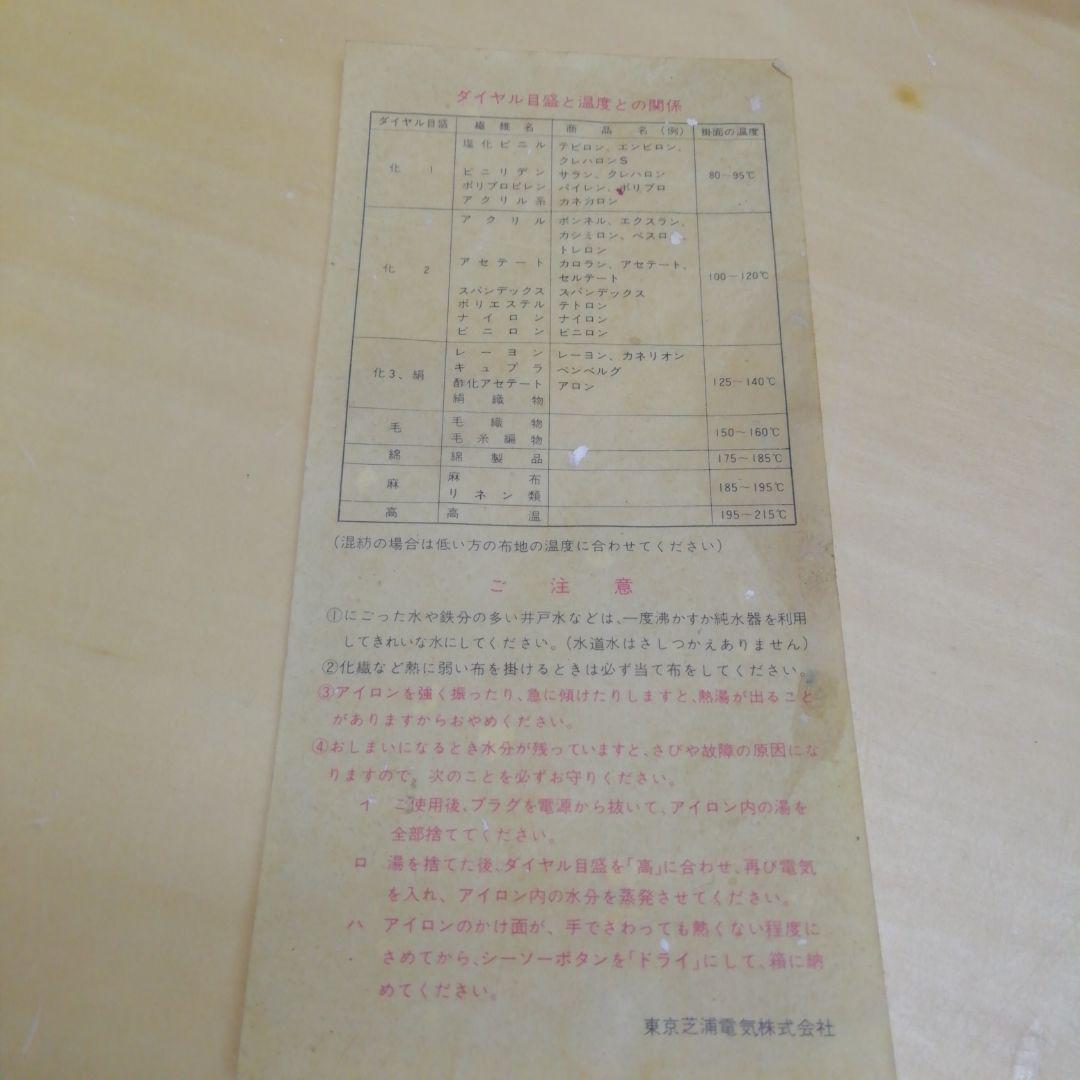 ダイヤル目盛と温度との関係
ダイヤル目盛 繊維名 商品名(例) 掛面の温度
化1 塩化ビニル テビロン、エンビロン、 80〜95℃
クレハロンS
ビニリデン サラン、クレハロン
ポリプロピレン パイレン、ポリプロ
アクリル系 カネカロン
化2 アクリル ボンネル、エクスラン、 100〜120℃
カシミロン、ベスロ、
トレロン
アセテート カロラン、アセテート、
セルテート
スパンデックス スパンデックス
ポリエステル テトロン
ナイロン ナイロン
ビニロン ビニロン
化3、絹 レーヨン レーヨン、カネリオン 125〜140℃
キュプラ ベンベルグ
酢化アセテート アロン
絹織物
毛 毛織物 150〜160℃
毛糸編物
綿 綿製品 175〜185℃
麻 麻布 185〜195℃
リネン類
高 高温 195〜215℃
(混紡の場合は低い方の布地の温度に合わせてください)
ご注意
①にごった水や鉄分の多い井戸水などは、一度沸かすか純水器を利用
してきれいな水にしてください。(水道水はさしつかえありません)
②化繊など熱に弱い布を掛けるときは必ず当て布をしてください。
③アイロンを強く振ったり、急に傾けたりしますと、熱湯が出ること
がありますからおやめください。
④おしまいになるとき水分が残っていますと、さびや故障の原因にな
りますので、次のことを必ずお守りください。
イ ご使用後、プラグを電源から抜いて、アイロン内の湯を
全部捨ててください。
ロ 湯を捨てた後、ダイヤル目盛を「高」に合わせ、再び電気
を入れ、アイロン内の水分を蒸発させてください。
ハ アイロンのかけ面が、手でさわっても熱くない程度に
さめてから、シーソーボタンを「ドライ」にして、箱に納
めてください。
東京芝浦電気株式会社